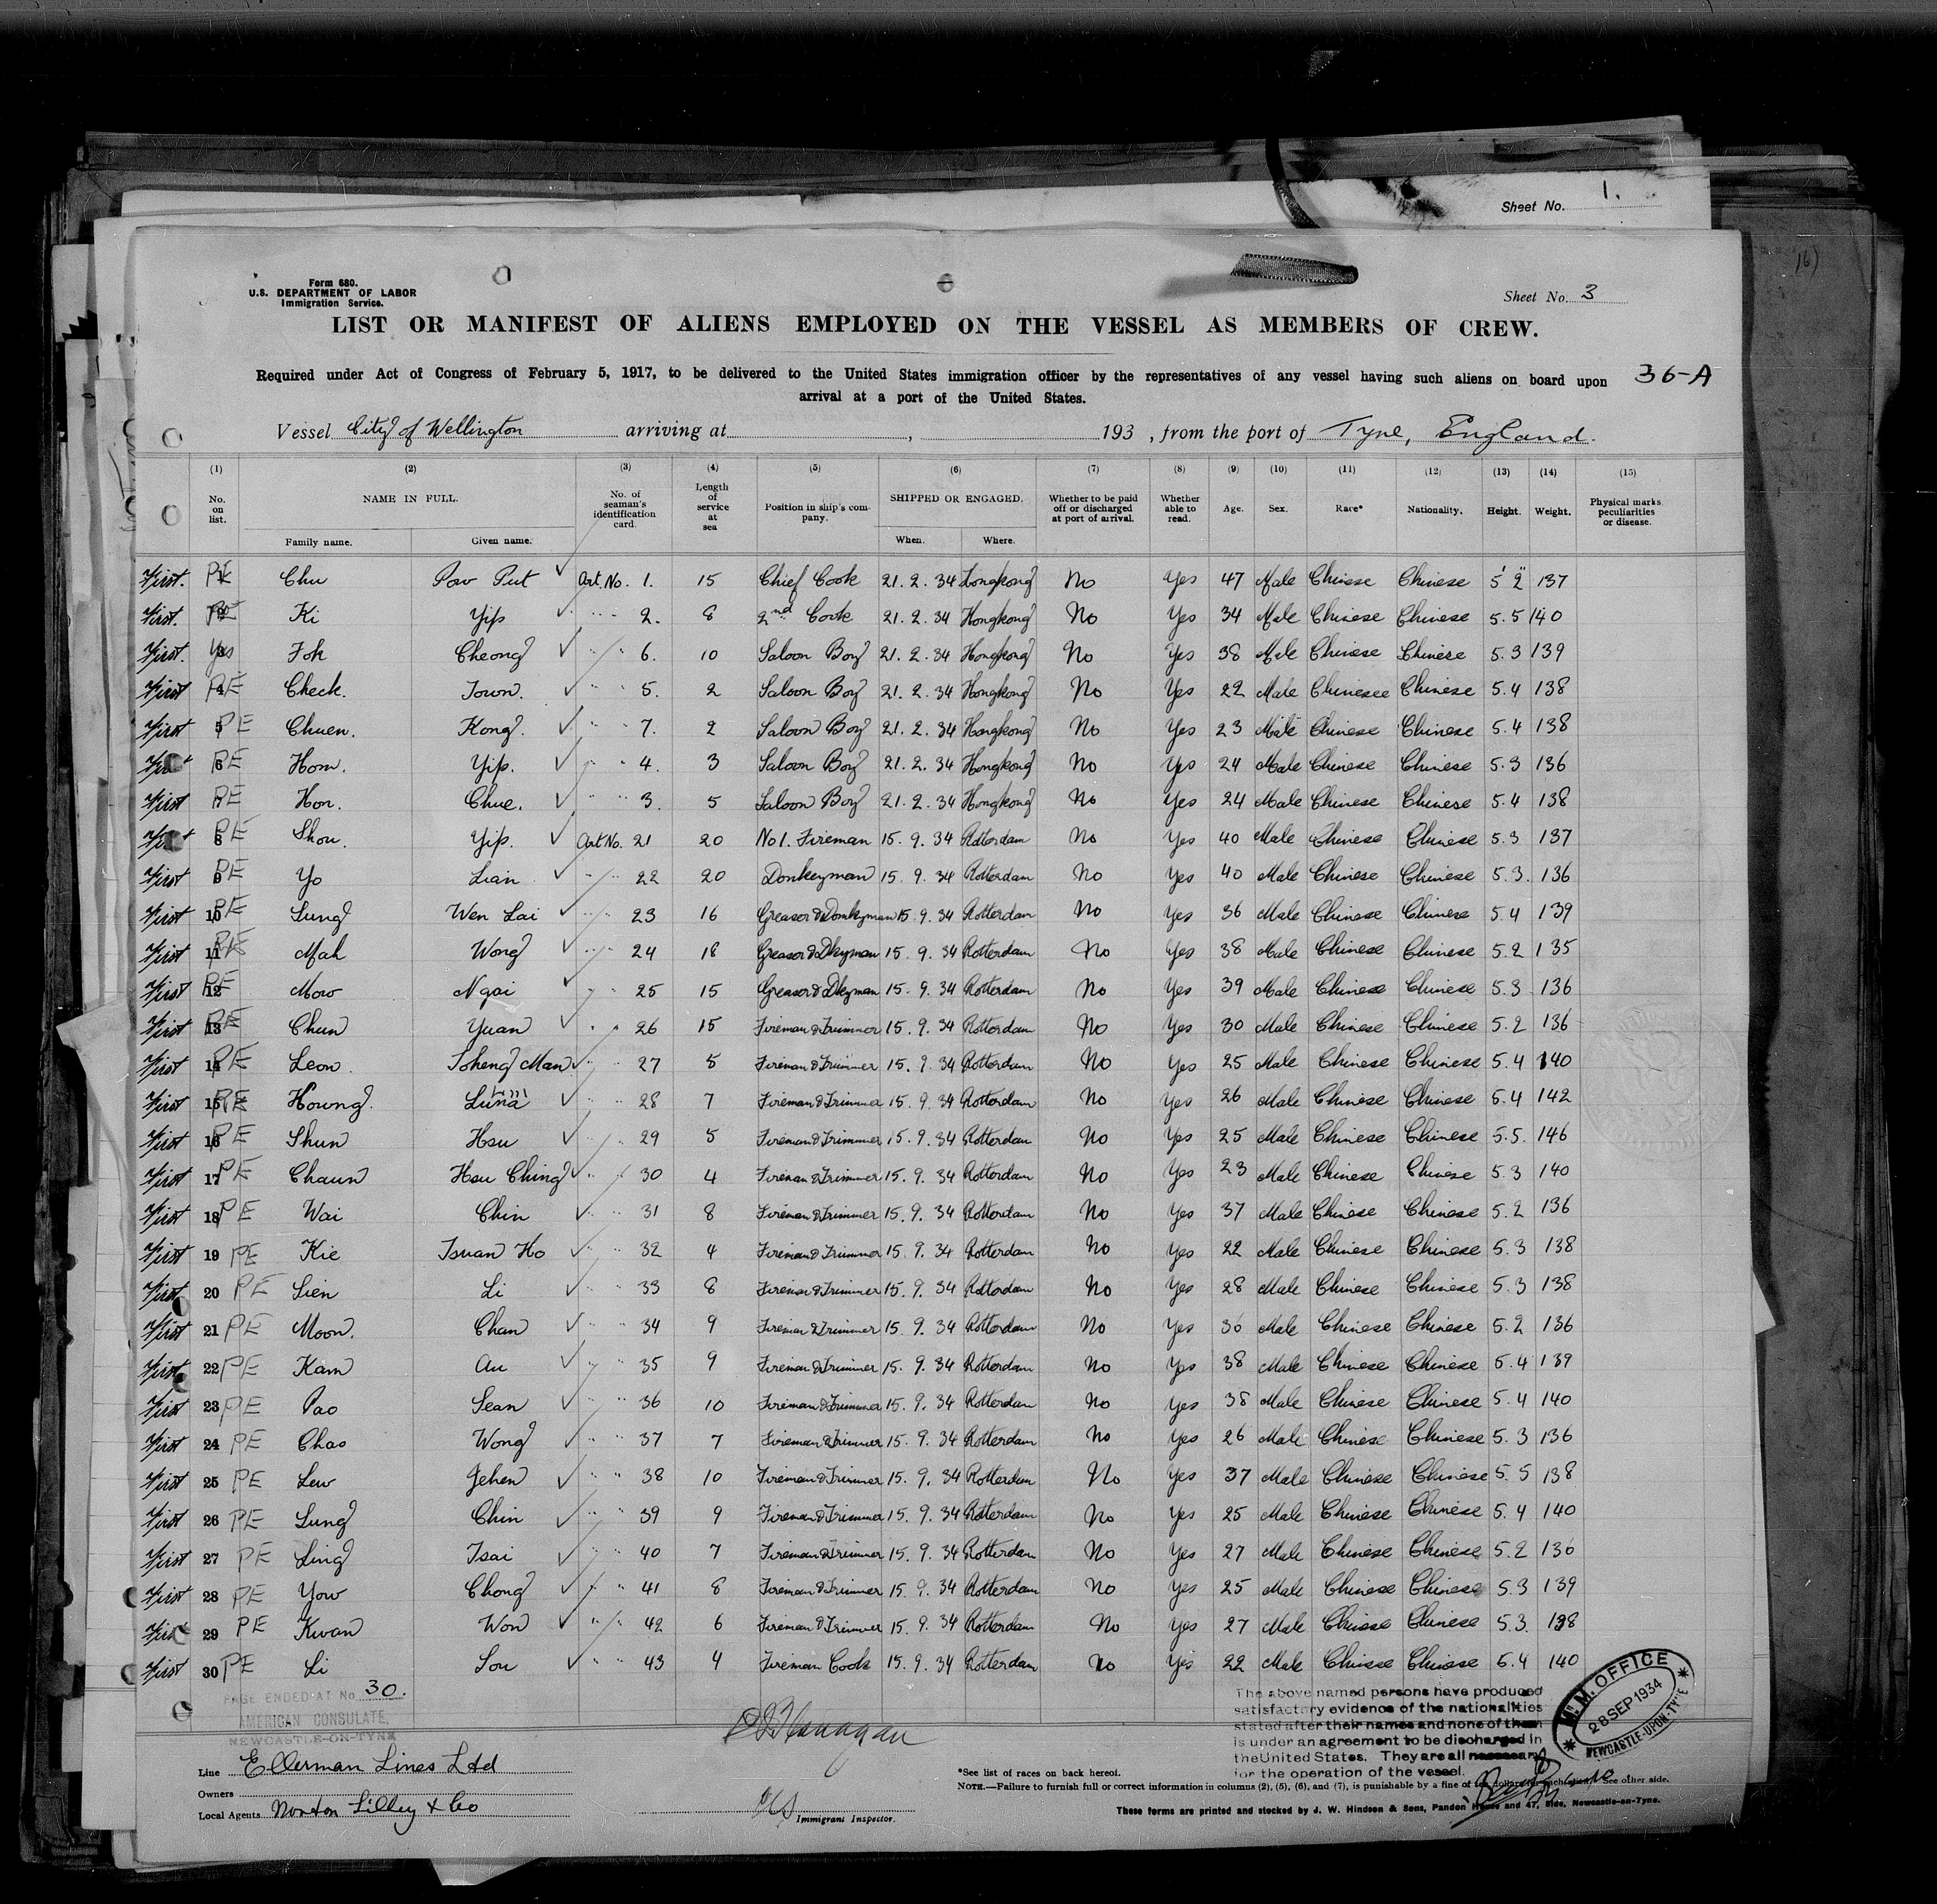 Sheet No. 1.
16)
Form 680.
U.S. DEPARTMENT OF LABOR
Immigration Service.
Sheet No. 3
LIST OR MANIFEST OF ALIENS EMPLOYED ON THE VESSEL AS MEMBERS OF CREW.
Required under Act of Congress of February 5, 1917, to be delivered to the United States immigration officer by the representatives of any vessel having such aliens on board upon
arrival at a port of the United States.
36-A
Vessel City of Wellington arriving at , 193 , from the port of Tyne, England.
(1) (2) (3) (4) (5) (6) (7) (8) (9) (10) (11) (12) (13) (14) (15)
No. on list. NAME IN FULL. Family name. Given name. No. of seaman's identification card. Length of service at sea Position in ship's company. SHIPPED OR ENGAGED. When. Where. Whether to be paid off or discharged at port of arrival. Whether able to read. Age. Sex. Race* Nationality. Height. Weight. Physical marks, peculiarities or disease.
First. PE 1 Chu Pow Put Art. No. 1. 15 Chief Cook 21. 2. 34 Hongkong No Yes 47 Male Chinese Chinese 5' 2" 137
First. PE 2 Ki Yip " " 2. 8 2nd Cook 21. 2. 34 Hongkong No Yes 34 Male Chinese Chinese 5. 5 140
First. Yes 3 Fok Cheong " " 6. 10 Saloon Boy 21. 2. 34 Hongkong No Yes 38 Male Chinese Chinese 5. 3 139
First PE 4 Check. Town. " " 5. 2 Saloon Boy 21. 2. 34 Hongkong No Yes 22 Male Chinesee Chinese 5. 4 138
First 5 PE Chuen. Kong. " " 7. 2 Saloon Boy 21. 2. 34 Hongkong No Yes 23 Male Chinese Chinese 5. 4 138
First 6 PE Hom. Yip. " " 4. 3 Saloon Boy 21. 2. 34 Hongkong No Yes 24 Male Chinese Chinese 5. 3 136
First 7 PE Hon. Chue. " " 3. 5 Saloon Boy 21. 2. 34 Hongkong No Yes 24 Male Chinese Chinese 5. 4 138
First 8 PE Shou. Yip. Art No. 21 20 No 1. Fireman 15. 9. 34 Rotterdam No Yes 40 Male Chinese Chinese 5. 3 137
First 9 PE Yo Lian " " 22 20 Donkeyman 15. 9. 34 Rotterdam No Yes 40 Male Chinese Chinese 5. 3. 136
First 10 PE Sung Wen Lai " " 23 16 Greaser & Donkeyman 15. 9. 34 Rotterdam No Yes 36 Male Chinese Chinese 5. 4 139
First 11 PE Mah Wong " " 24 18 Greaser & Dkyman 15. 9. 34 Rotterdam No Yes 38 Male Chinese Chinese 5. 2 135
First 12 PE Mow Ngai " " 25 15 Greaser & Dkyman 15. 9. 34 Rotterdam No Yes 39 Male Chinese Chinese 5. 3 136
First 13 PE Chun Yuan " " 26 15 Fireman & Trimmer 15. 9. 34 Rotterdam No Yes 30 Male Chinese Chinese 5. 2 136
First 14 PE Leon. Tsheng Man " " 27 5 Fireman & Trimmer 15. 9. 34 Rotterdam No Yes 25 Male Chinese Chinese 5. 4 140
First 15 PE Houng. " " 28 7 Fireman & Trimmer 15. 9. 34 Rotterdam No Yes 26 Male Chinese Chinese 5. 4 142
First 16 PE Shun Hsu " " 29 5 Fireman & Trimmer 15. 9. 34 Rotterdam No Yes 25 Male Chinese Chinese 5. 5. 146
First 17 PE Chaun Hsu Ching " " 30 4 Fireman & Trimmer 15. 9. 34 Rotterdam No Yes 23 Male Chinese Chinese 5. 3 140
First 18 PE Wai Chin " " 31 8 Fireman & Trimmer 15. 9. 34 Rotterdam No Yes 37 Male Chinese Chinese 5. 2 136
First 19 PE Kie Tsuan Ho " " 32 4 Fireman & Trimmer 15. 9. 34 Rotterdam No Yes 22 Male Chinese Chinese 5. 3 138
First 20 PE Lien Li " " 33 8 Fireman & Trimmer 15. 9. 34 Rotterdam No Yes 28 Male Chinese Chinese 5. 3 138
First 21 PE Moon. Chan " " 34 9 Fireman & Trimmer 15. 9. 34 Rotterdam No Yes 36 Male Chinese Chinese 5. 2 136
First 22 PE Kam Au " " 35 9 Fireman & Trimmer 15. 9. 34 Rotterdam No Yes 38 Male Chinese Chinese 5. 4 139
First 23 PE Pao Sean " " 36 10 Fireman & Trimmer 15. 9. 34 Rotterdam No Yes 38 Male Chinese Chinese 5. 4 140
First 24 PE Chao Wong " " 37 7 Fireman & Trimmer 15. 9. 34 Rotterdam No Yes 26 Male Chinese Chinese 5. 3 136
First 25 PE Lew Jehen " " 38 10 Fireman & Trimmer 15. 9. 34 Rotterdam No Yes 37 Male Chinese Chinese 5. 5 138
First 26 PE Sung Chin " " 39 9 Fireman & Trimmer 15. 9. 34 Rotterdam No Yes 25 Male Chinese Chinese 5. 4 140
First 27 PE Ling Tsai " " 40 7 Fireman & Trimmer 15. 9. 34 Rotterdam No Yes 27 Male Chinese Chinese 5. 2 136
First 28 PE Yow Chong " " 41 8 Fireman & Trimmer 15. 9. 34 Rotterdam No Yes 25 Male Chinese Chinese 5. 3 139
First 29 PE Kwan Won " " 42 6 Fireman & Trimmer 15. 9. 34 Rotterdam No Yes 27 Male Chinese Chinese 5. 3. 138
First 30 PE Li Sou " " 43 4 Fireman Cook 15. 9. 34 Rotterdam No Yes 22 Male Chinese Chinese 5. 4 140
PAGE ENDED AT No. 30.
AMERICAN CONSULATE,
NEWCASTLE-ON-TYNE
The above named persons have produced
satisfactory evidence of the nationalities
stated after their names and none of them
is under an agreement to be discharged in
the United States. They are all necessary
for the operation of the vessel.
M.M. OFFICE
28 SEP 1934
NEWCASTLE-UPON-TYNE
Line Ellerman Lines Ltd
Owners
Local Agents Norton Lilley & Co
Immigrant Inspector.
*See list of races on back hereof.
NOTE.—Failure to furnish full or correct information in columns (2), (5), (6), and (7), is punishable by a fine of ten dollars for each alien. See other side.
These forms are printed and stocked by J. W. Hindson & Sons, Pandon House and 47, Side, Newcastle-on-Tyne.